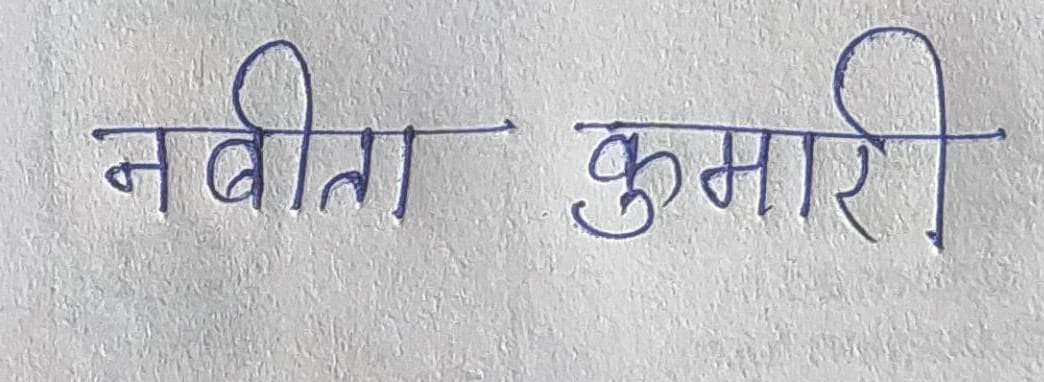 नबीता कुमारी